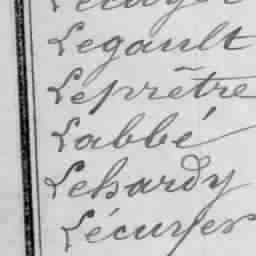 Legault
Leprêtre
Labbé
Lehardy
Lécuyer